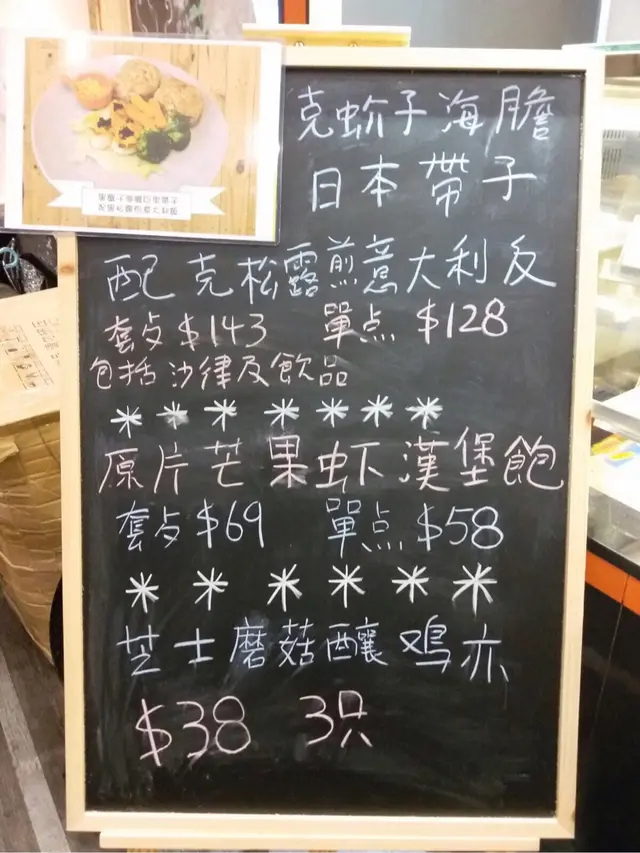 克蚧子海膽
日本帶子
配克松露煎意大利反
套歺 $143 單点 $128
包括沙律及飲品
*******
原片芒果虾漢堡飽
套歺 $69 單点 $58
******
芝士磨菇釀鸡亦
$38 3只